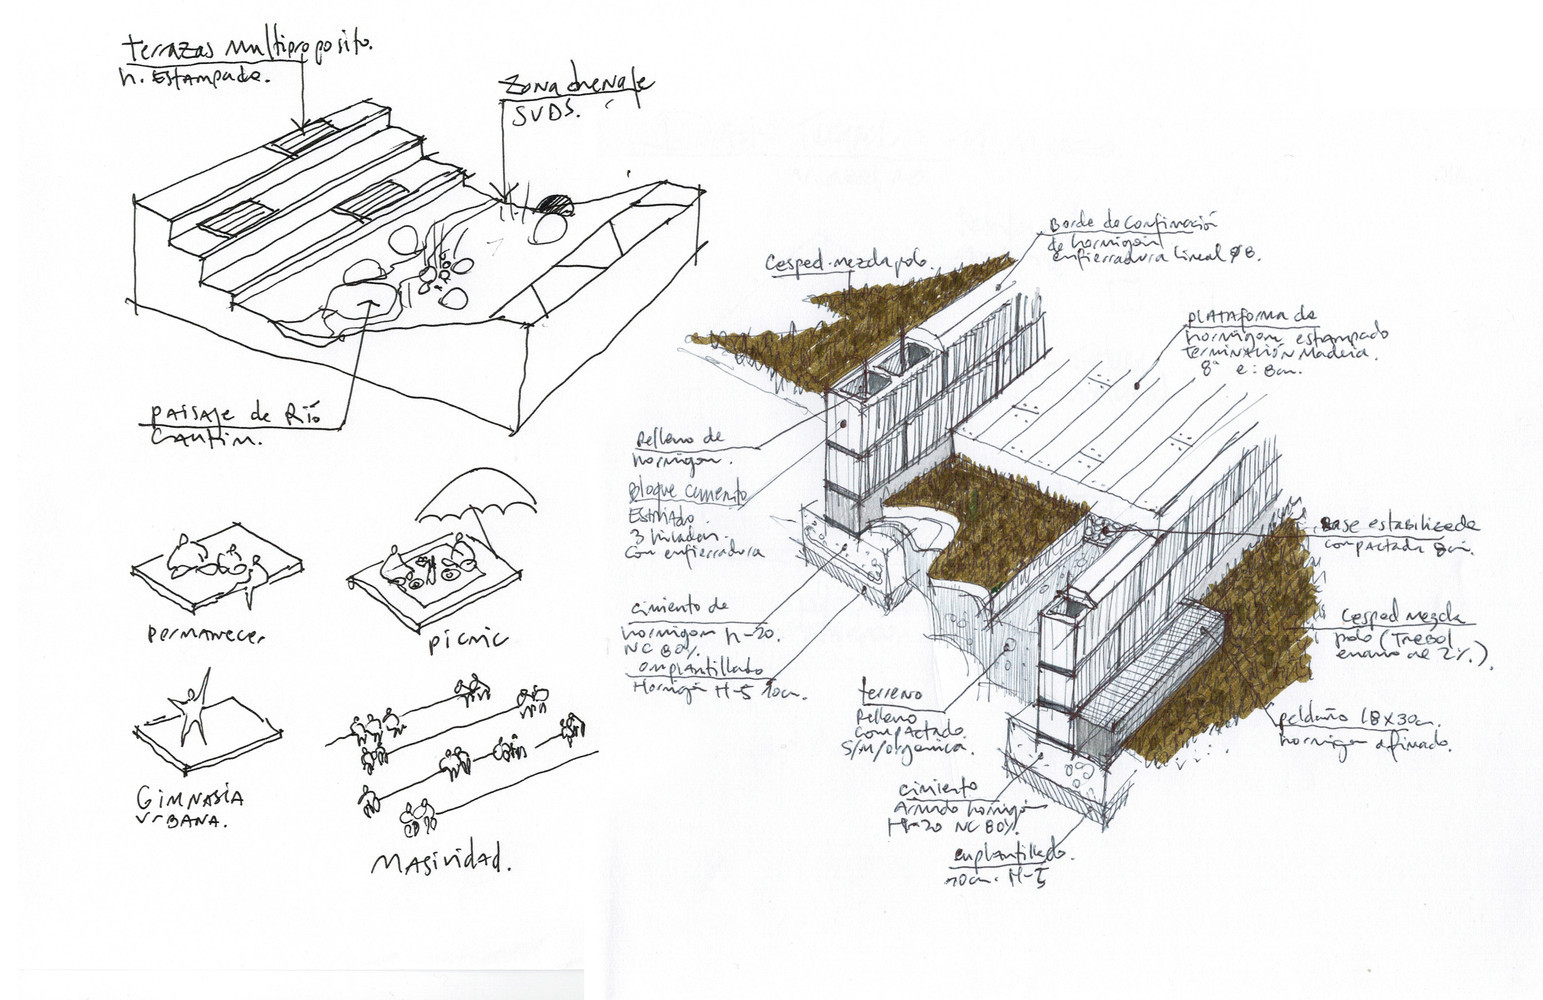 terrazas multiproposito.
h. Estampado.
Zona drenaje
SUDS.
Paisaje de Río
Cautín.
Permanecer
picnic
Gimnasia
urbana.
Masividad.
Cesped mezcla polo.
Borde de confinación
de hormigón
enfierradura lineal ø8.
Plataforma de
hormigón estampado
terminación Madera.
8" e: 8cm.
Relleno de
hormigon.
Bloque cemento
Estriado.
3 hiladas.
con enfierradura
cimiento de
hormigon h-20.
NC 80%.
emplantillado
Hormigón H-5 10cm.
terreno
Relleno
compactado
S/M/organica.
cimiento
Armado hormigón
H-20 NC 80%.
emplantillado.
10cm. H-5
Base estabilizada
compactada 8cm.
Cesped mezcla
polo (Trebol
enano de 2%.).
peldaño 18x30cm.
hormigon afinado.